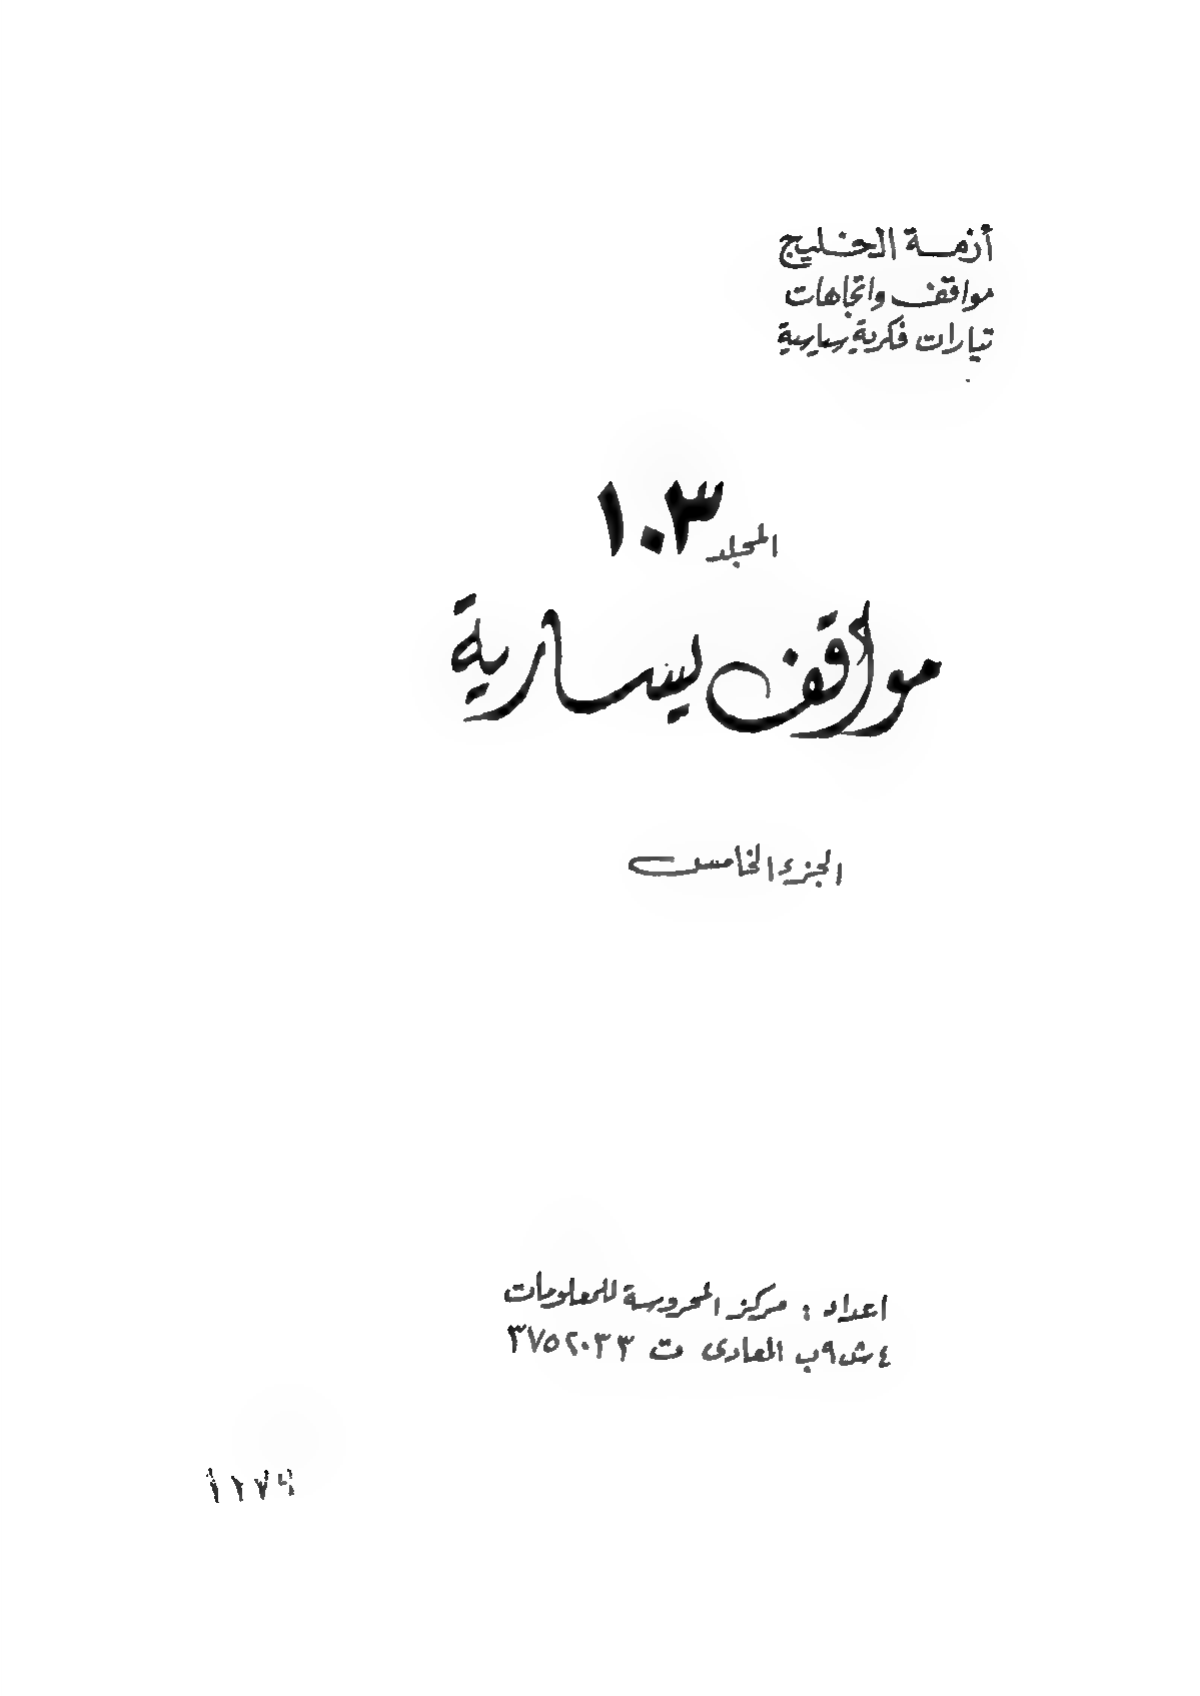 أزمة الخليج
مواقف واتجاهات
تيارات فكرية سياسية
المجلد ١٠٣
مواقف يسارية
الجزء الخامس
اعداد : مركز المحروسة للمعلومات
٤ ش ٩ب المعادى ت ٣٧٥٢٠٣٣
١٢٧٩